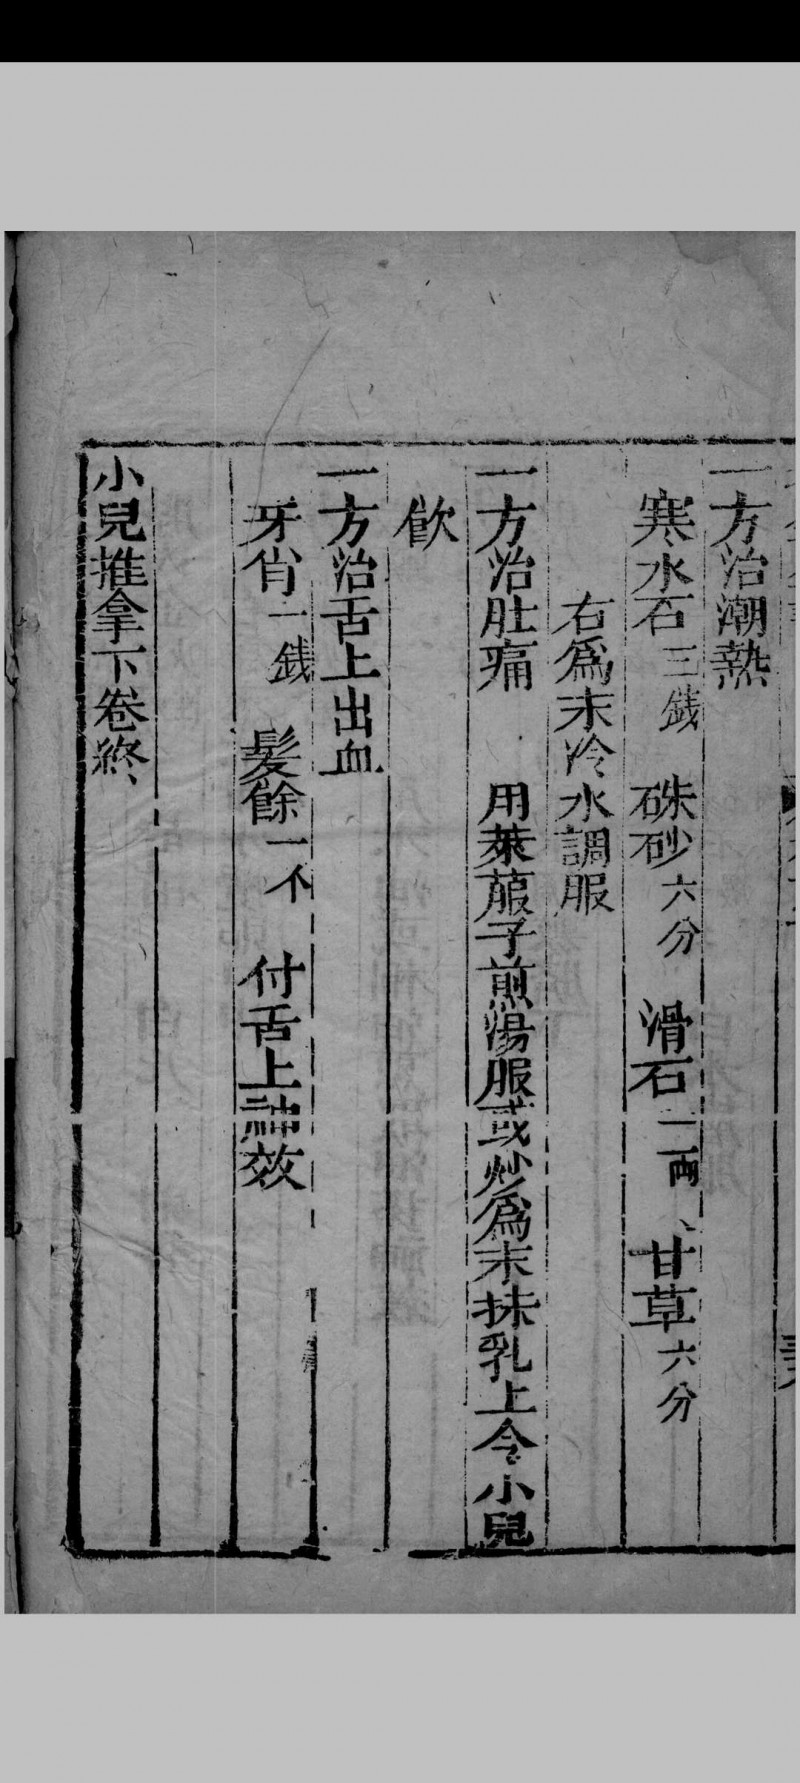 一方治潮熱
寒水石三錢　硃砂六分　滑石一兩　甘草六分
右爲末冷水調服
一方治肚痛　用萊菔子煎湯服或炒爲末抹乳上令小兒
飲
一方治舌上出血
牙肖一錢　髮餘一不　付舌上神效
小兒推拿下卷終